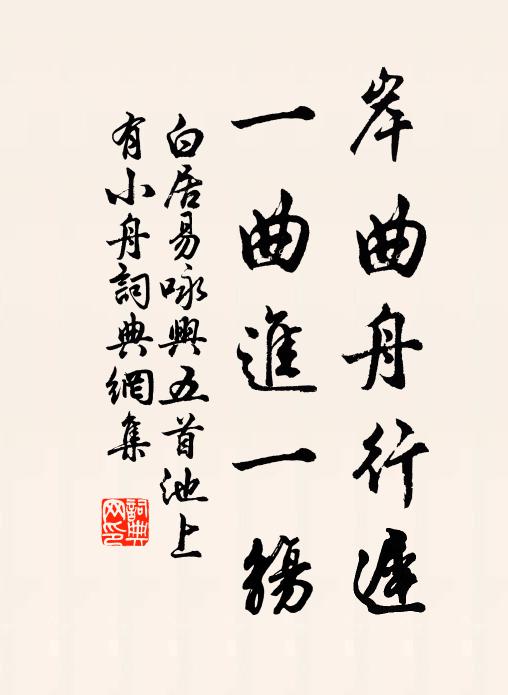 岸曲舟行遲
一曲進一觴
白居易咏興五首池上
有小舟詞典網集
詞典
网印